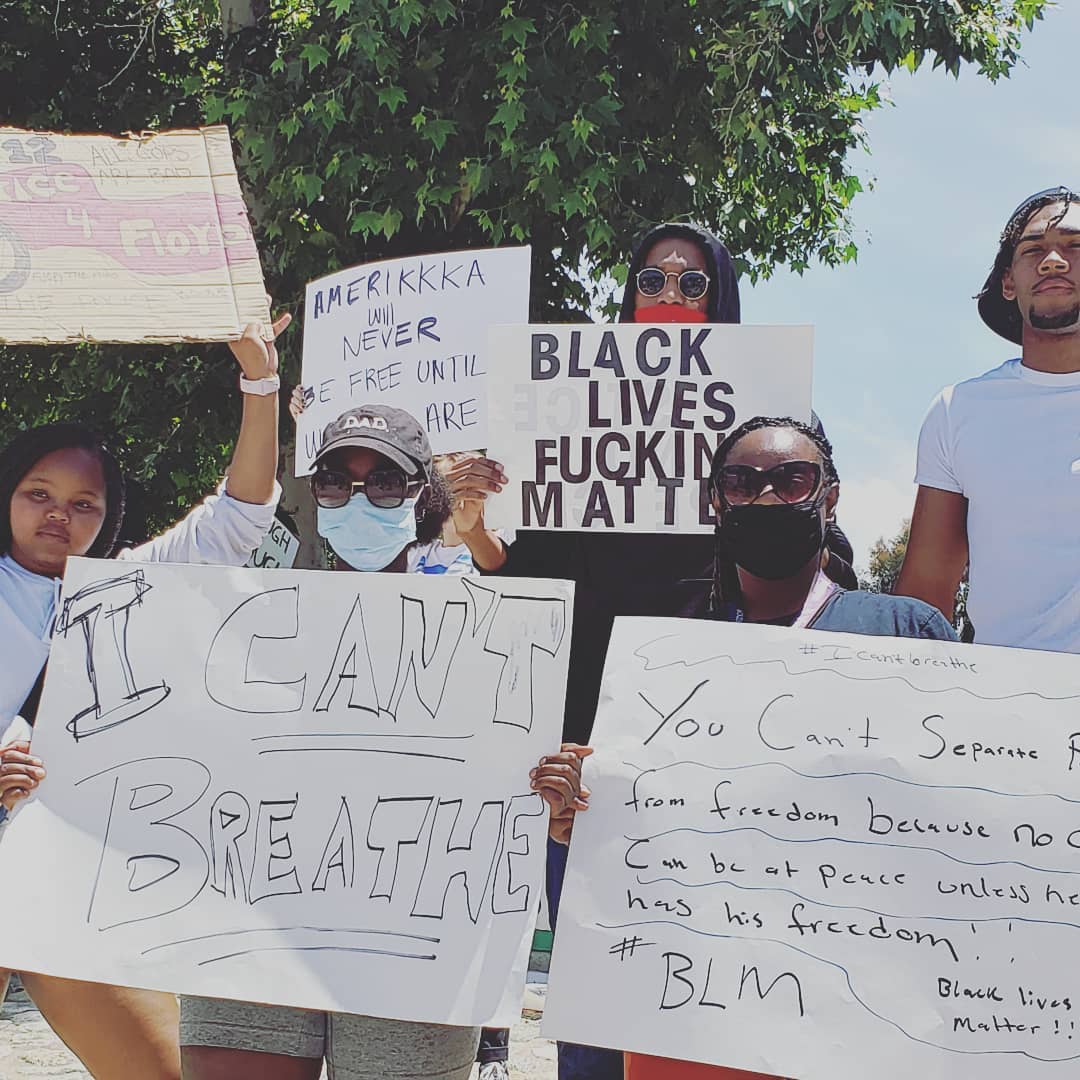 12
ALL COPS
ARE BAD
ICE
4
FLOYD
AMERIKKKA
Will
NEVER
BE FREE UNTIL
ARE
BLACK
LIVES
FUCKIN
MATTE
DAD
I CAN'T
BREATHE
#Icantbreathe
You Can't Separate
from freedom because no
Can be at peace unless he
has his freedom!!
#BLM
Black lives
Matter!!